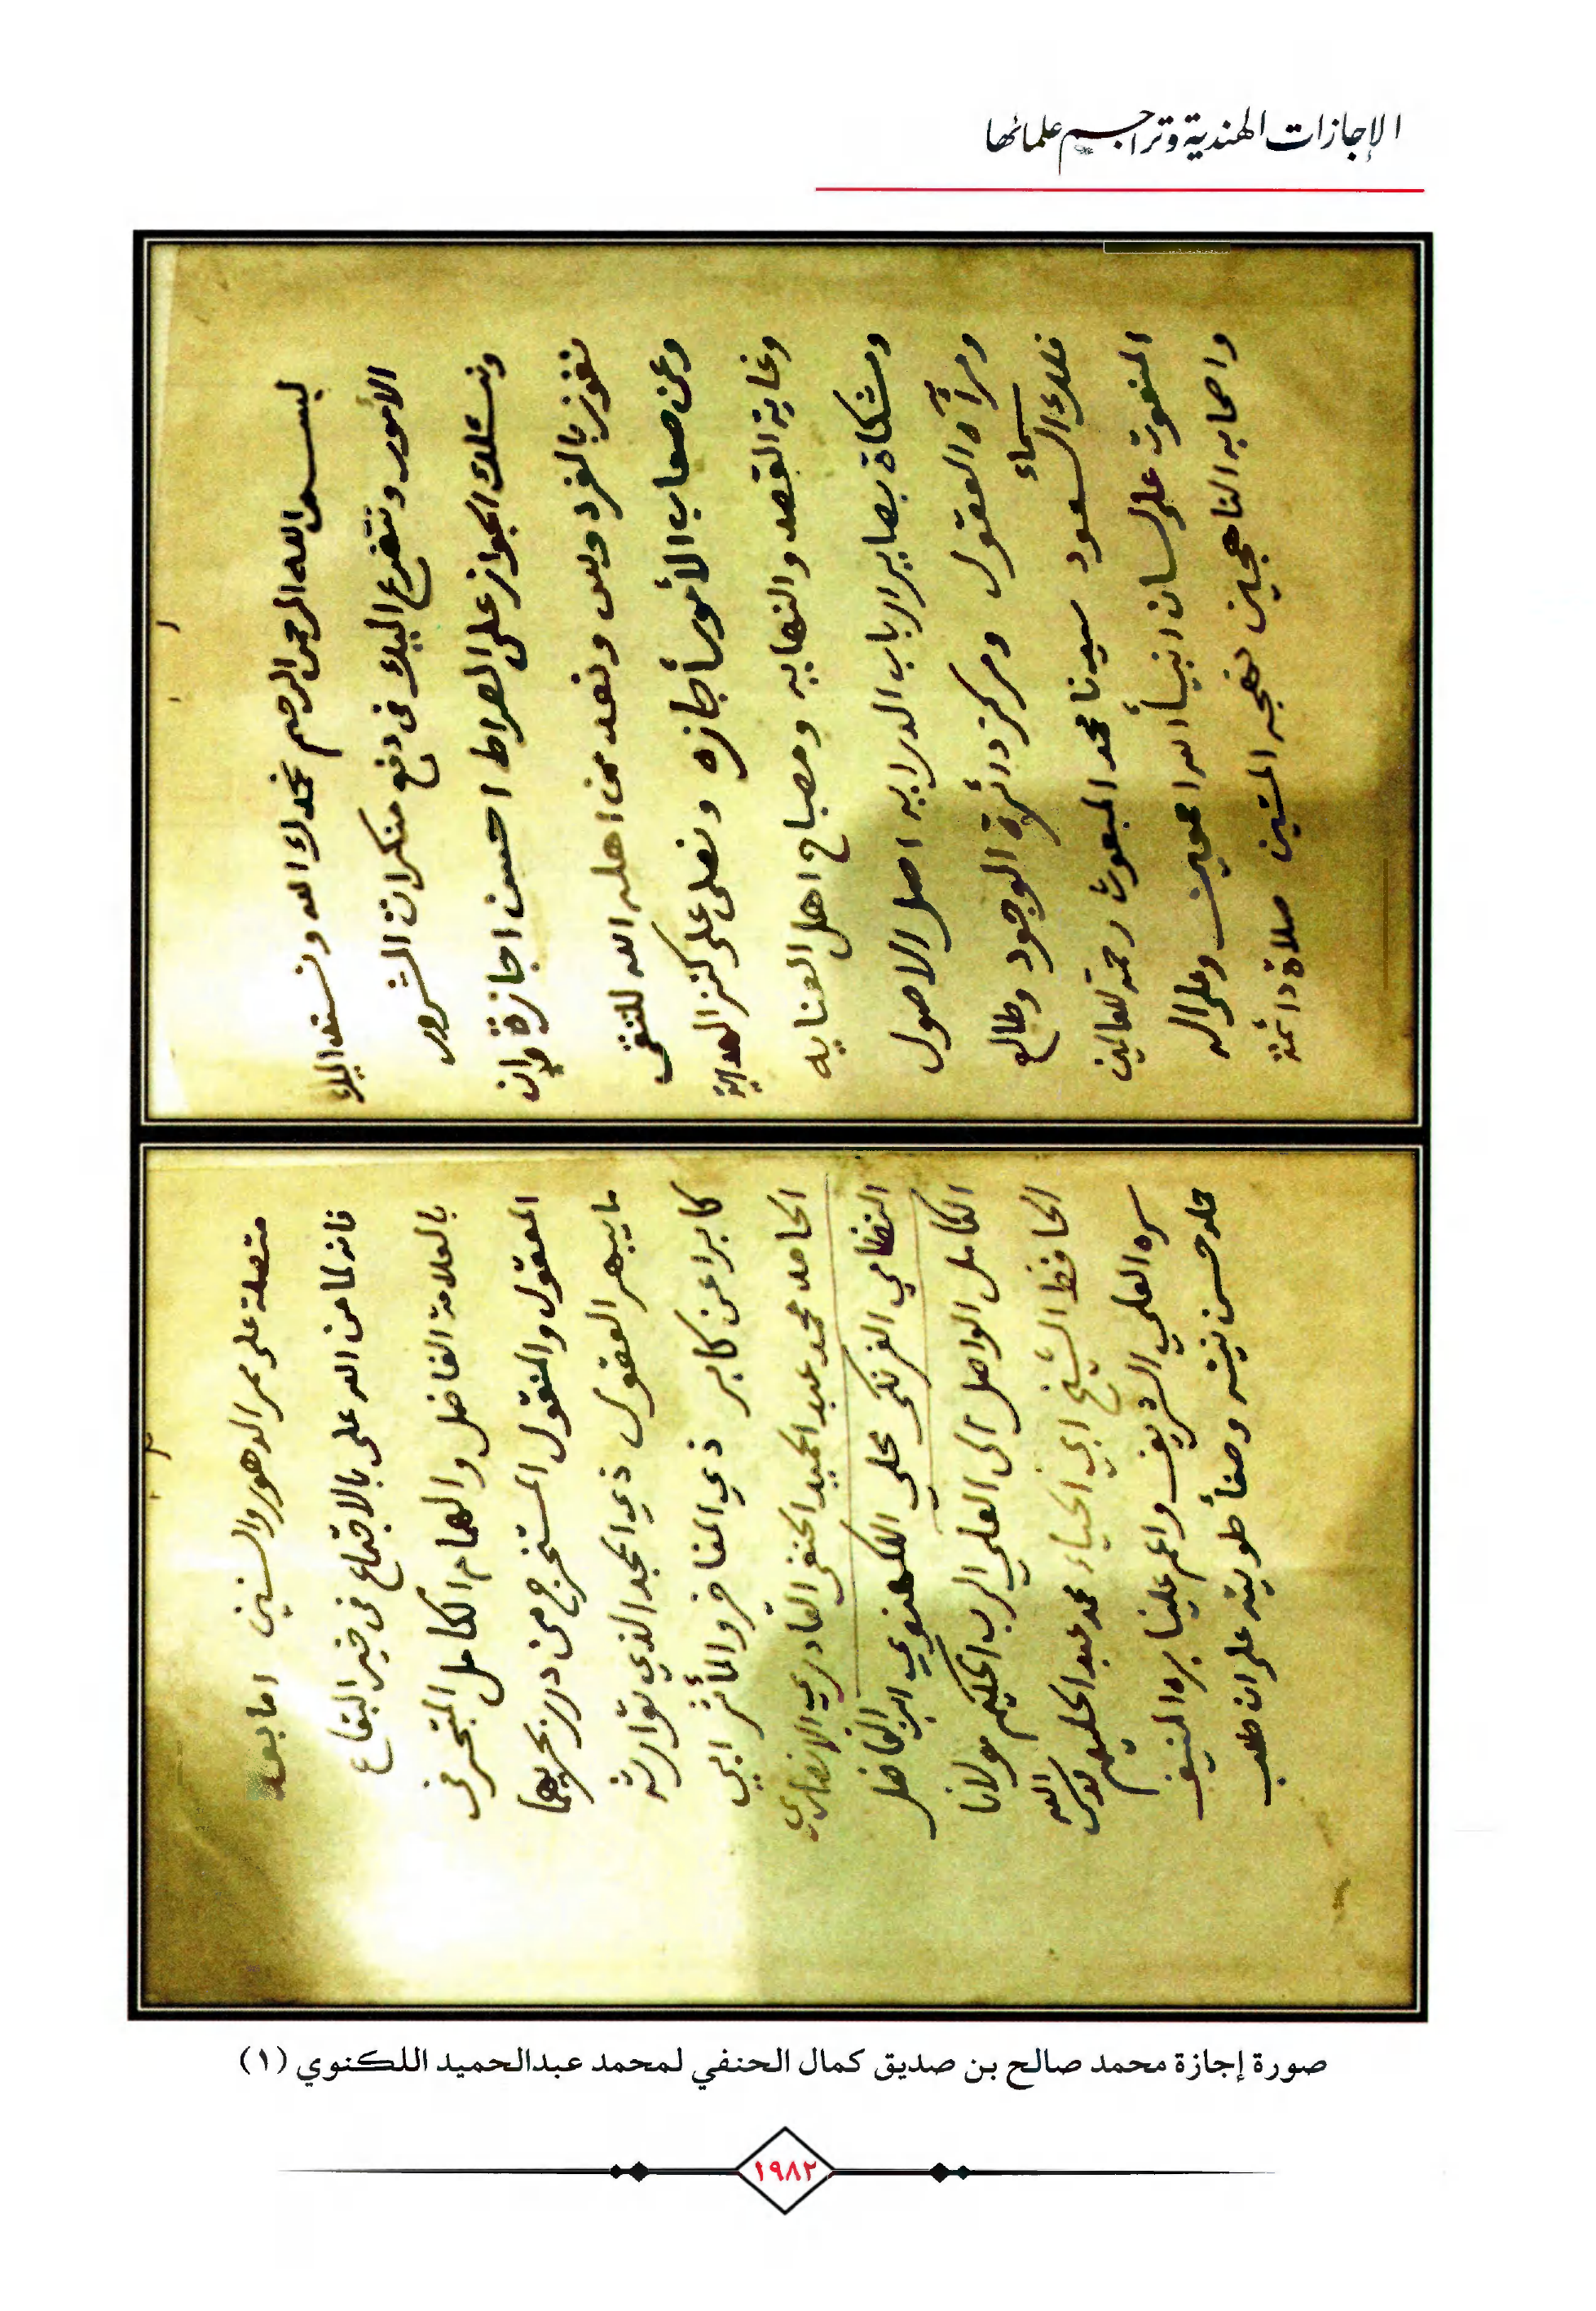 الإجازات الهندية وتراجم علمائها
بسم الله الرحمن الرحيم نحمدك الله ونستند اليك
الأمور ونتضرع اليك في دفع منكرات الشرور
ونسئلك الجواز على الصراط احسن اجازة وان
نفوز بالفردوس ونعد من اهله الله للتقى
وعن صعاب الأمور أجازه ونصلي على كنز الهداية
وغاية القصد والنهايه ومصباح اهل العنايه
ومشكاة بصاير ارباب الدرايه اصل الاصول
ومرآة العقول ومركز دائرة الوجود وطالع
فلك سماء السعود سيدنا محمد المبعوث رحمة للعالمين
المنعوت على لسان انبيأ الله اجمعين وعلى اله
واصحابه الناهجين نهجه المتين صلاة دائمة
متصلة على ممر الدهور والسنين اما بعد
فانه لما من الله علي بالاجتماع في خير البقاع
بالعلامة الفاضل والهمام الكامل المتبحر في
المعقول والمنقول المستخرج من درر بحريهما
ما يبهر العقول ذي المجد الذي توارثه
كابرا عن كابر ذي المفاخر والمأثر ابي
الحامد محمد عبد الحميد الحنفي القادري الانصاري
النظامي الفرنكي محلي اللكهنوي ابن الفاضل
الكامل الواصل الى العلي الرب الحكيم مولانا
الحافظ الشيخ ابي الحياء محمد عبد الحليم قدس الله
سره العلي الشريف واعم علينا بره المنيف
حمله حسن نيته وصفأ طويته على ان طلب
صورة إجازة محمد صالح بن صديق كمال الحنفي لمحمد عبدالحميد اللكنوي (١)
١٩٨٢